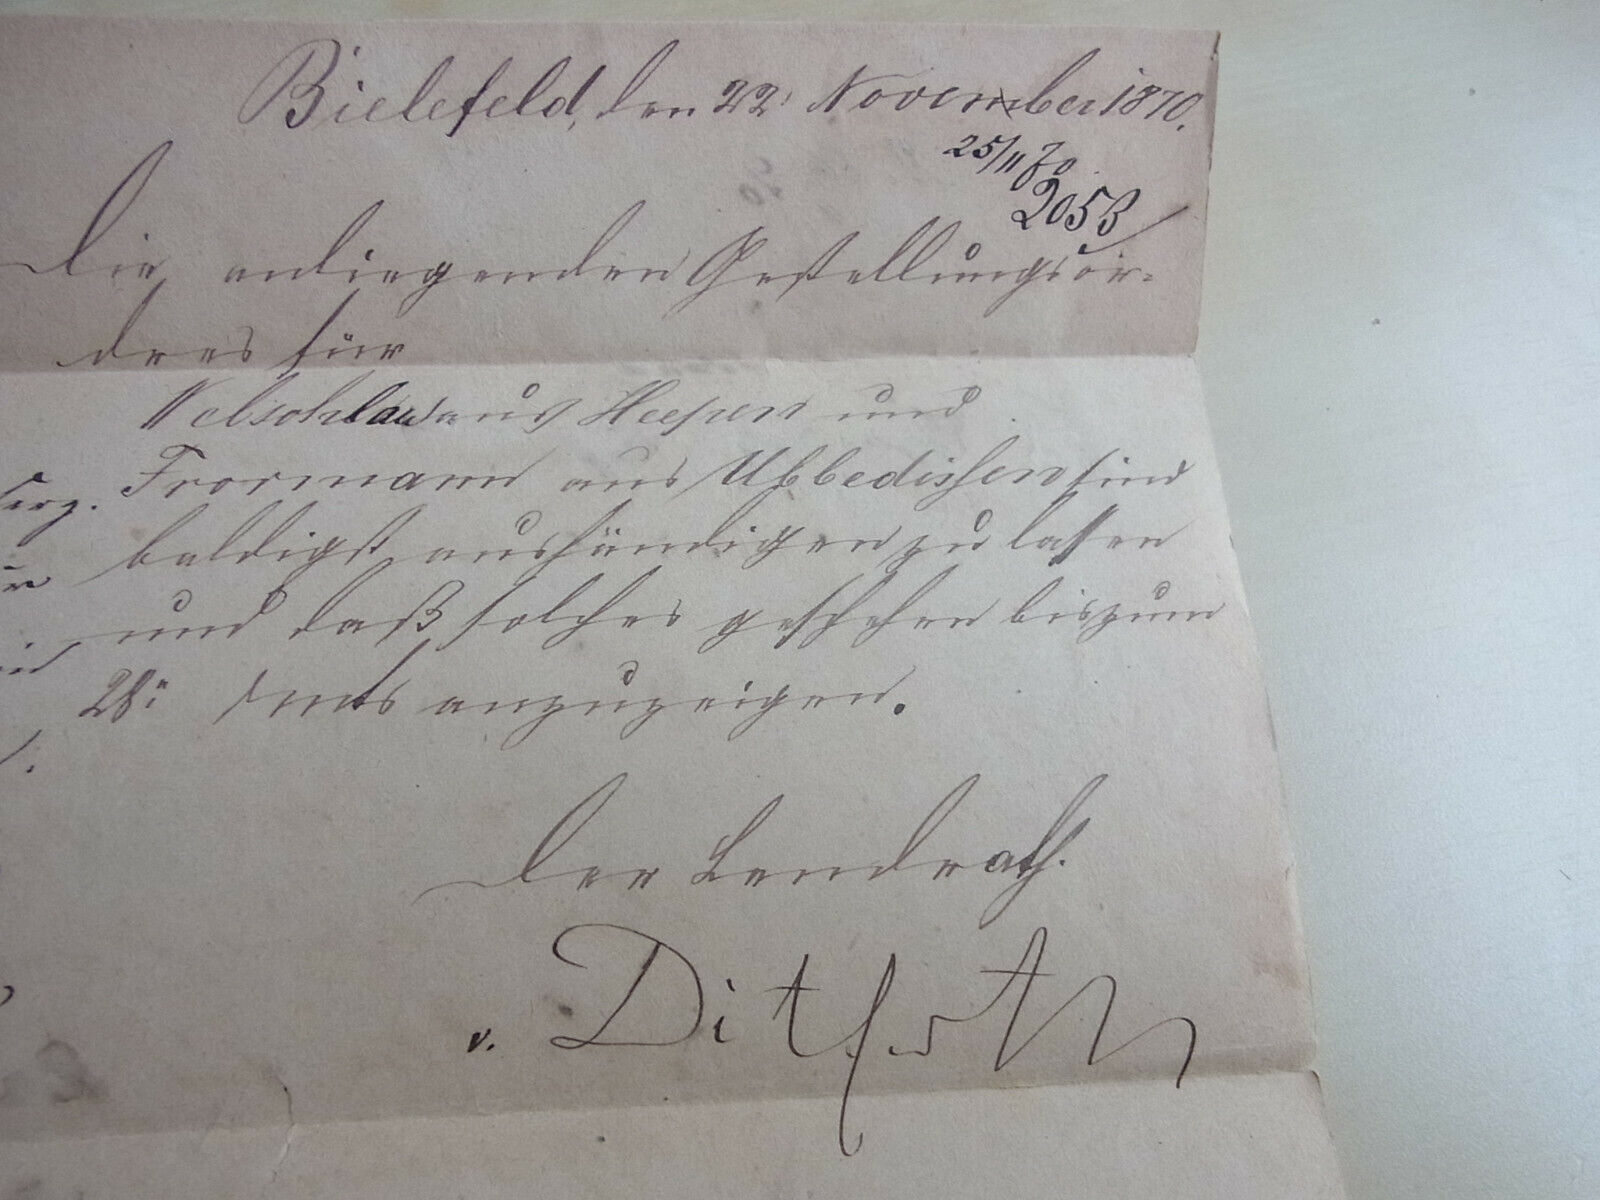 Bielefeld, den 22. November 1870.
25/11 70
2053
Die anliegenden Gestellungsor-
dres für
aus Heepen und
Frormann aus Ubbedissen sind
baldigst aushändigen zu lassen
und daß solches geschehen bis zum
28. anzuzeigen.
Der Landrath.
v. Ditfurth